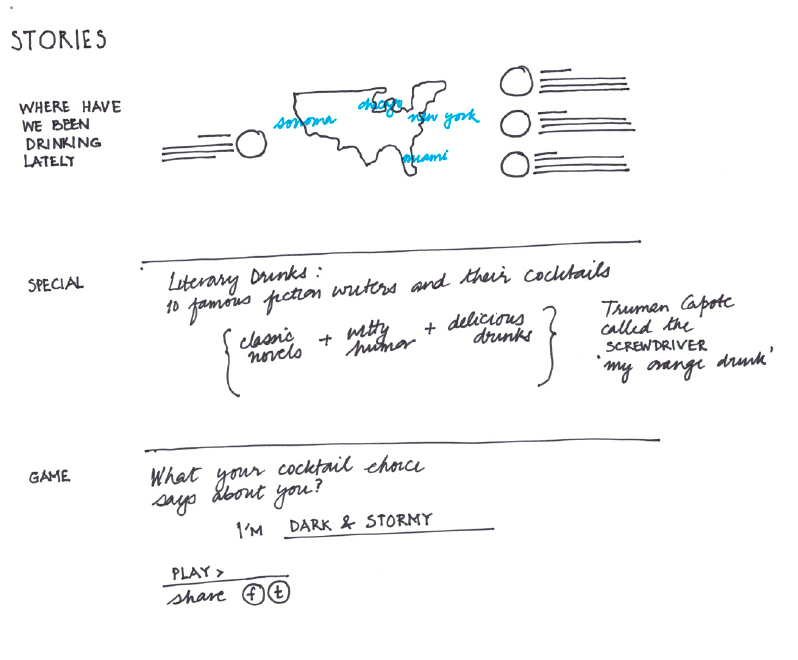 STORIES
WHERE HAVE
WE BEEN
DRINKING
LATELY
sonoma
chicago
new york
miami
SPECIAL
Literary Drinks:
10 famous fiction writers and their cocktails
{ classic
novels
+ witty
humor
+ delicious
drinks }
Truman Capote
called the
SCREWDRIVER
'my orange drink'
GAME
What your cocktail choice
says about you?
I'M DARK & STORMY
PLAY >
share f t